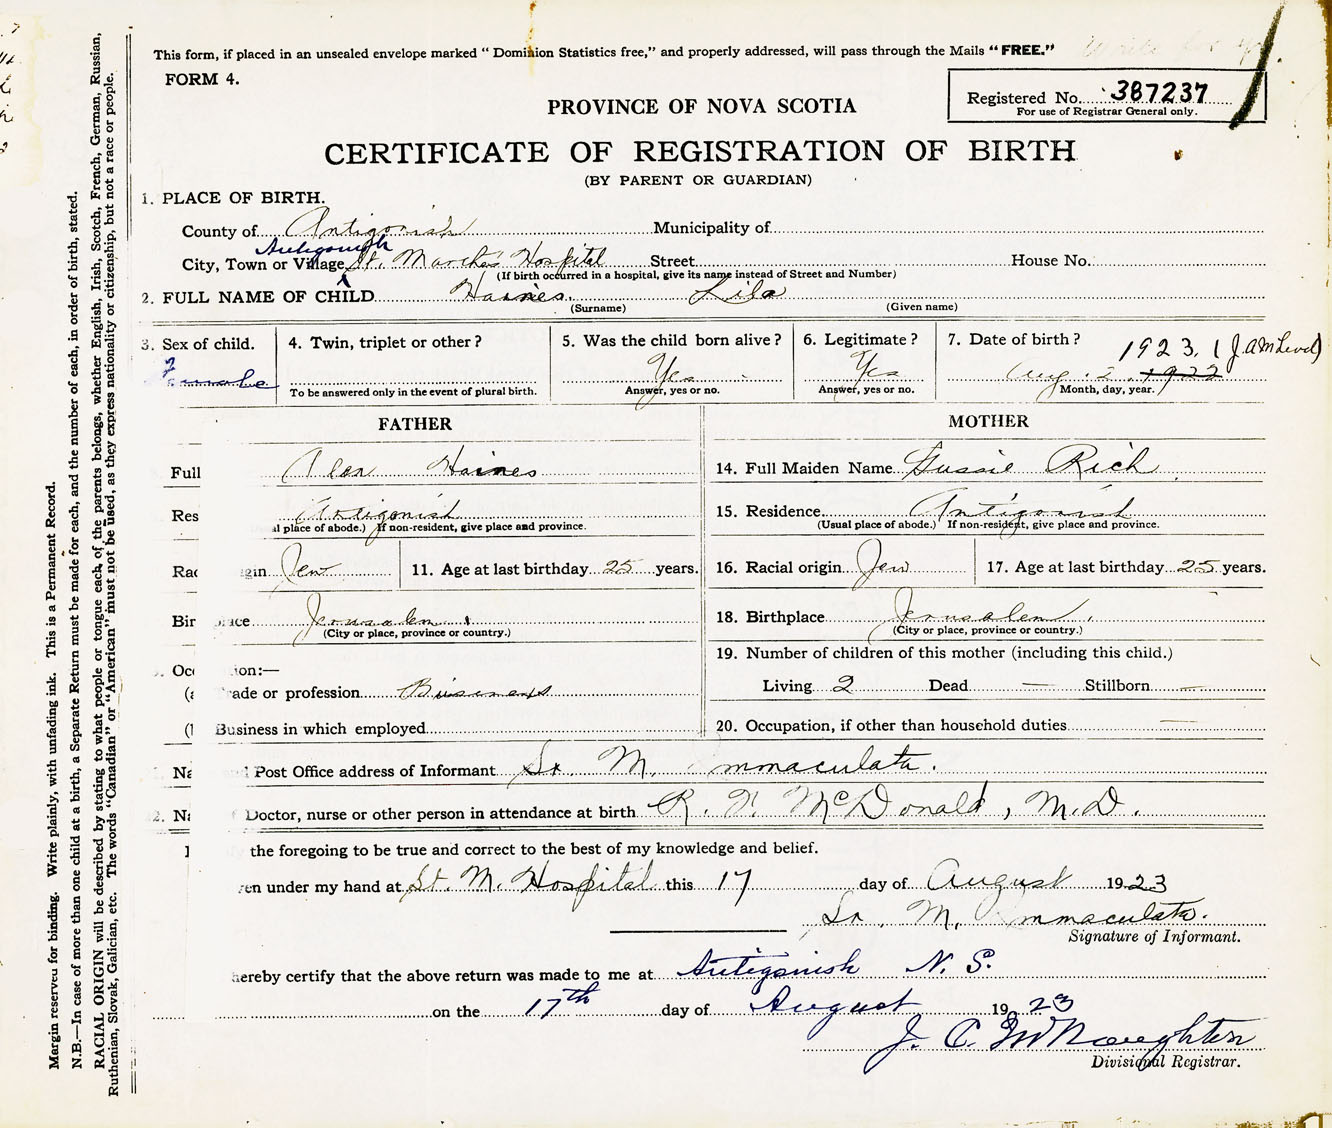 This form, if placed in an unsealed envelope marked "Dominion Statistics free," and properly addressed, will pass through the Mails "FREE."
FORM 4.
Registered No. 387237
For use of Registrar General only.
PROVINCE OF NOVA SCOTIA
CERTIFICATE OF REGISTRATION OF BIRTH
(BY PARENT OR GUARDIAN)
1. PLACE OF BIRTH.
County of Antigonish Municipality of
Antigonish
City, Town or Village St. Martha's Hospital Street House No.
(If birth occurred in a hospital, give its name instead of Street and Number)
2. FULL NAME OF CHILD Haines. Lila
(Surname) (Given name)
3. Sex of child. 4. Twin, triplet or other? 5. Was the child born alive? 6. Legitimate? 7. Date of birth? 1923. (J.A.
F
Female Yes Yes Aug. 2 1922
To be answered only in the event of plural birth. Answer, yes or no. Answer, yes or no. Month, day, year.
FATHER MOTHER
Full Alex Haines 14. Full Maiden Name Gussie Rich
Res Antigonish 15. Residence Antigonish
al place of abode.) If non-resident, give place and province. (Usual place of abode.) If non-resident, give place and province.
Rac gin Jew 11. Age at last birthday 25 years. 16. Racial origin Jew 17. Age at last birthday 25 years.
Bir lace Jerusalem. 18. Birthplace Jerusalem.
(City or place, province or country.) (City or place, province or country.)
Occ ion:— 19. Number of children of this mother (including this child.)
(a rade or profession Business Living 2 Dead — Stillborn —
( Business in which employed 20. Occupation, if other than household duties —
Na Post Office address of Informant Sr. M. Immaculata.
2. Na Doctor, nurse or other person in attendance at birth R. F. McDonald, M.D.
the foregoing to be true and correct to the best of my knowledge and belief.
en under my hand at St. M. Hospital this 17 day of August 1923
Sr. M. Immaculata.
Signature of Informant.
hereby certify that the above return was made to me at Antigonish N. S.
on the 17th day of August 1923
J. C. McNaughton
Divisional Registrar.
Margin reserved for binding. Write plainly, with unfading ink. This is a Permanent Record.
N.B.—In case of more than one child at a birth, a Separate Return must be made for each, and the number of each, in order of birth, stated.
RACIAL ORIGIN will be described by stating to what people or tongue each of the parents belongs, whether English, Irish, Scotch, French, German, Russian,
Ruthenian, Slovak, Galician, etc. The words "Canadian" or "American" must not be used, as they express nationality or citizenship, but not a race or people.